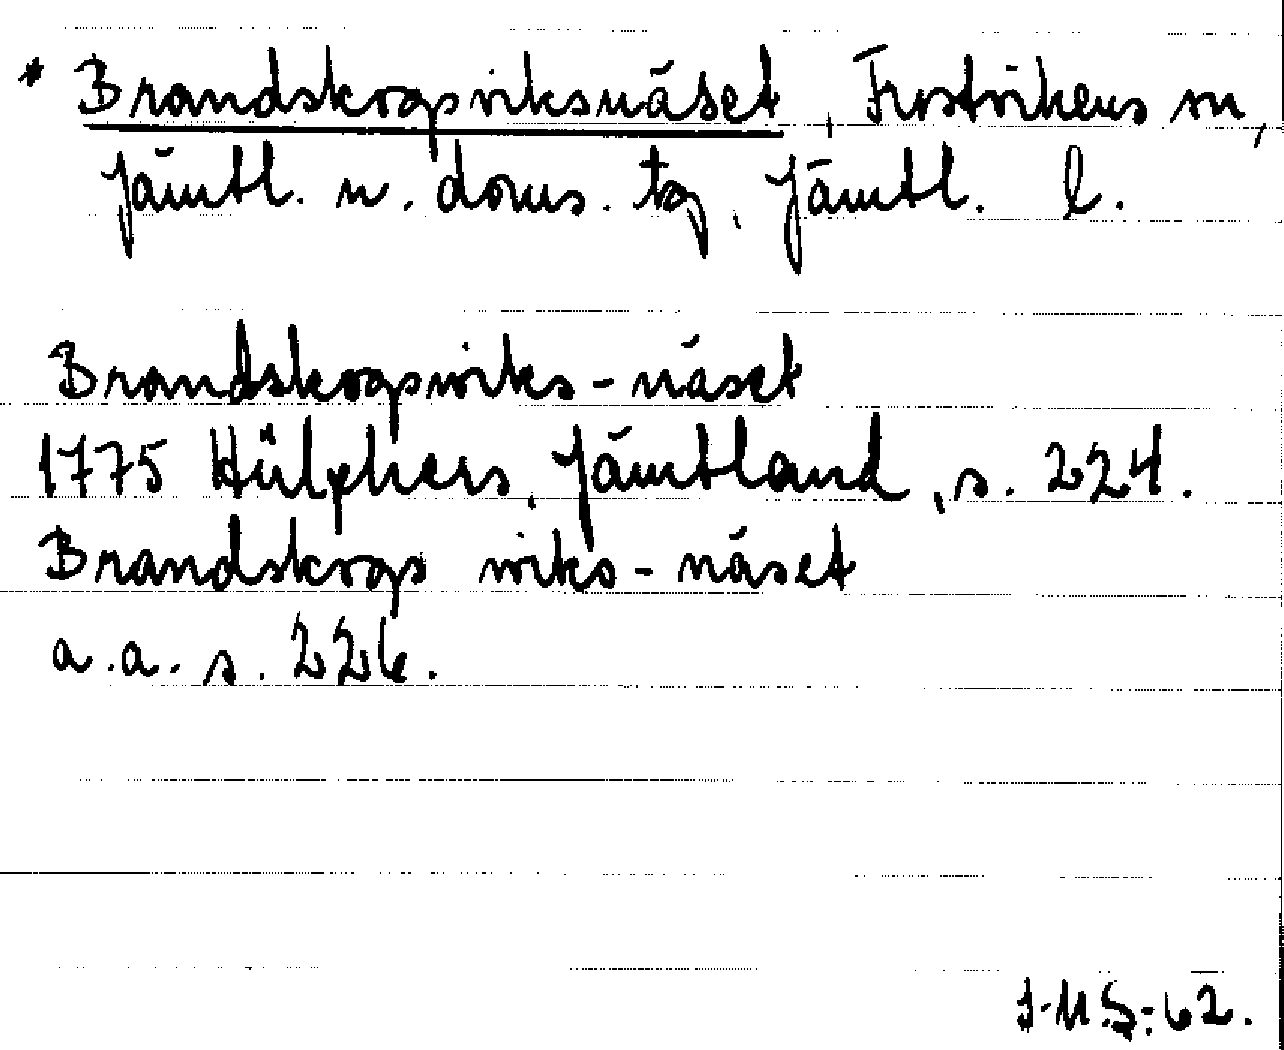 * Brandskogsviksnäset, Frostvikens sn,
Jämtl. n. doms. tg, Jämtl. l.
Brandskogswiks-näset
1775 Hülphers, Jämtland, s. 224.
Brandskogs wiks-näset
a.a. s. 226.
I-M S-62.